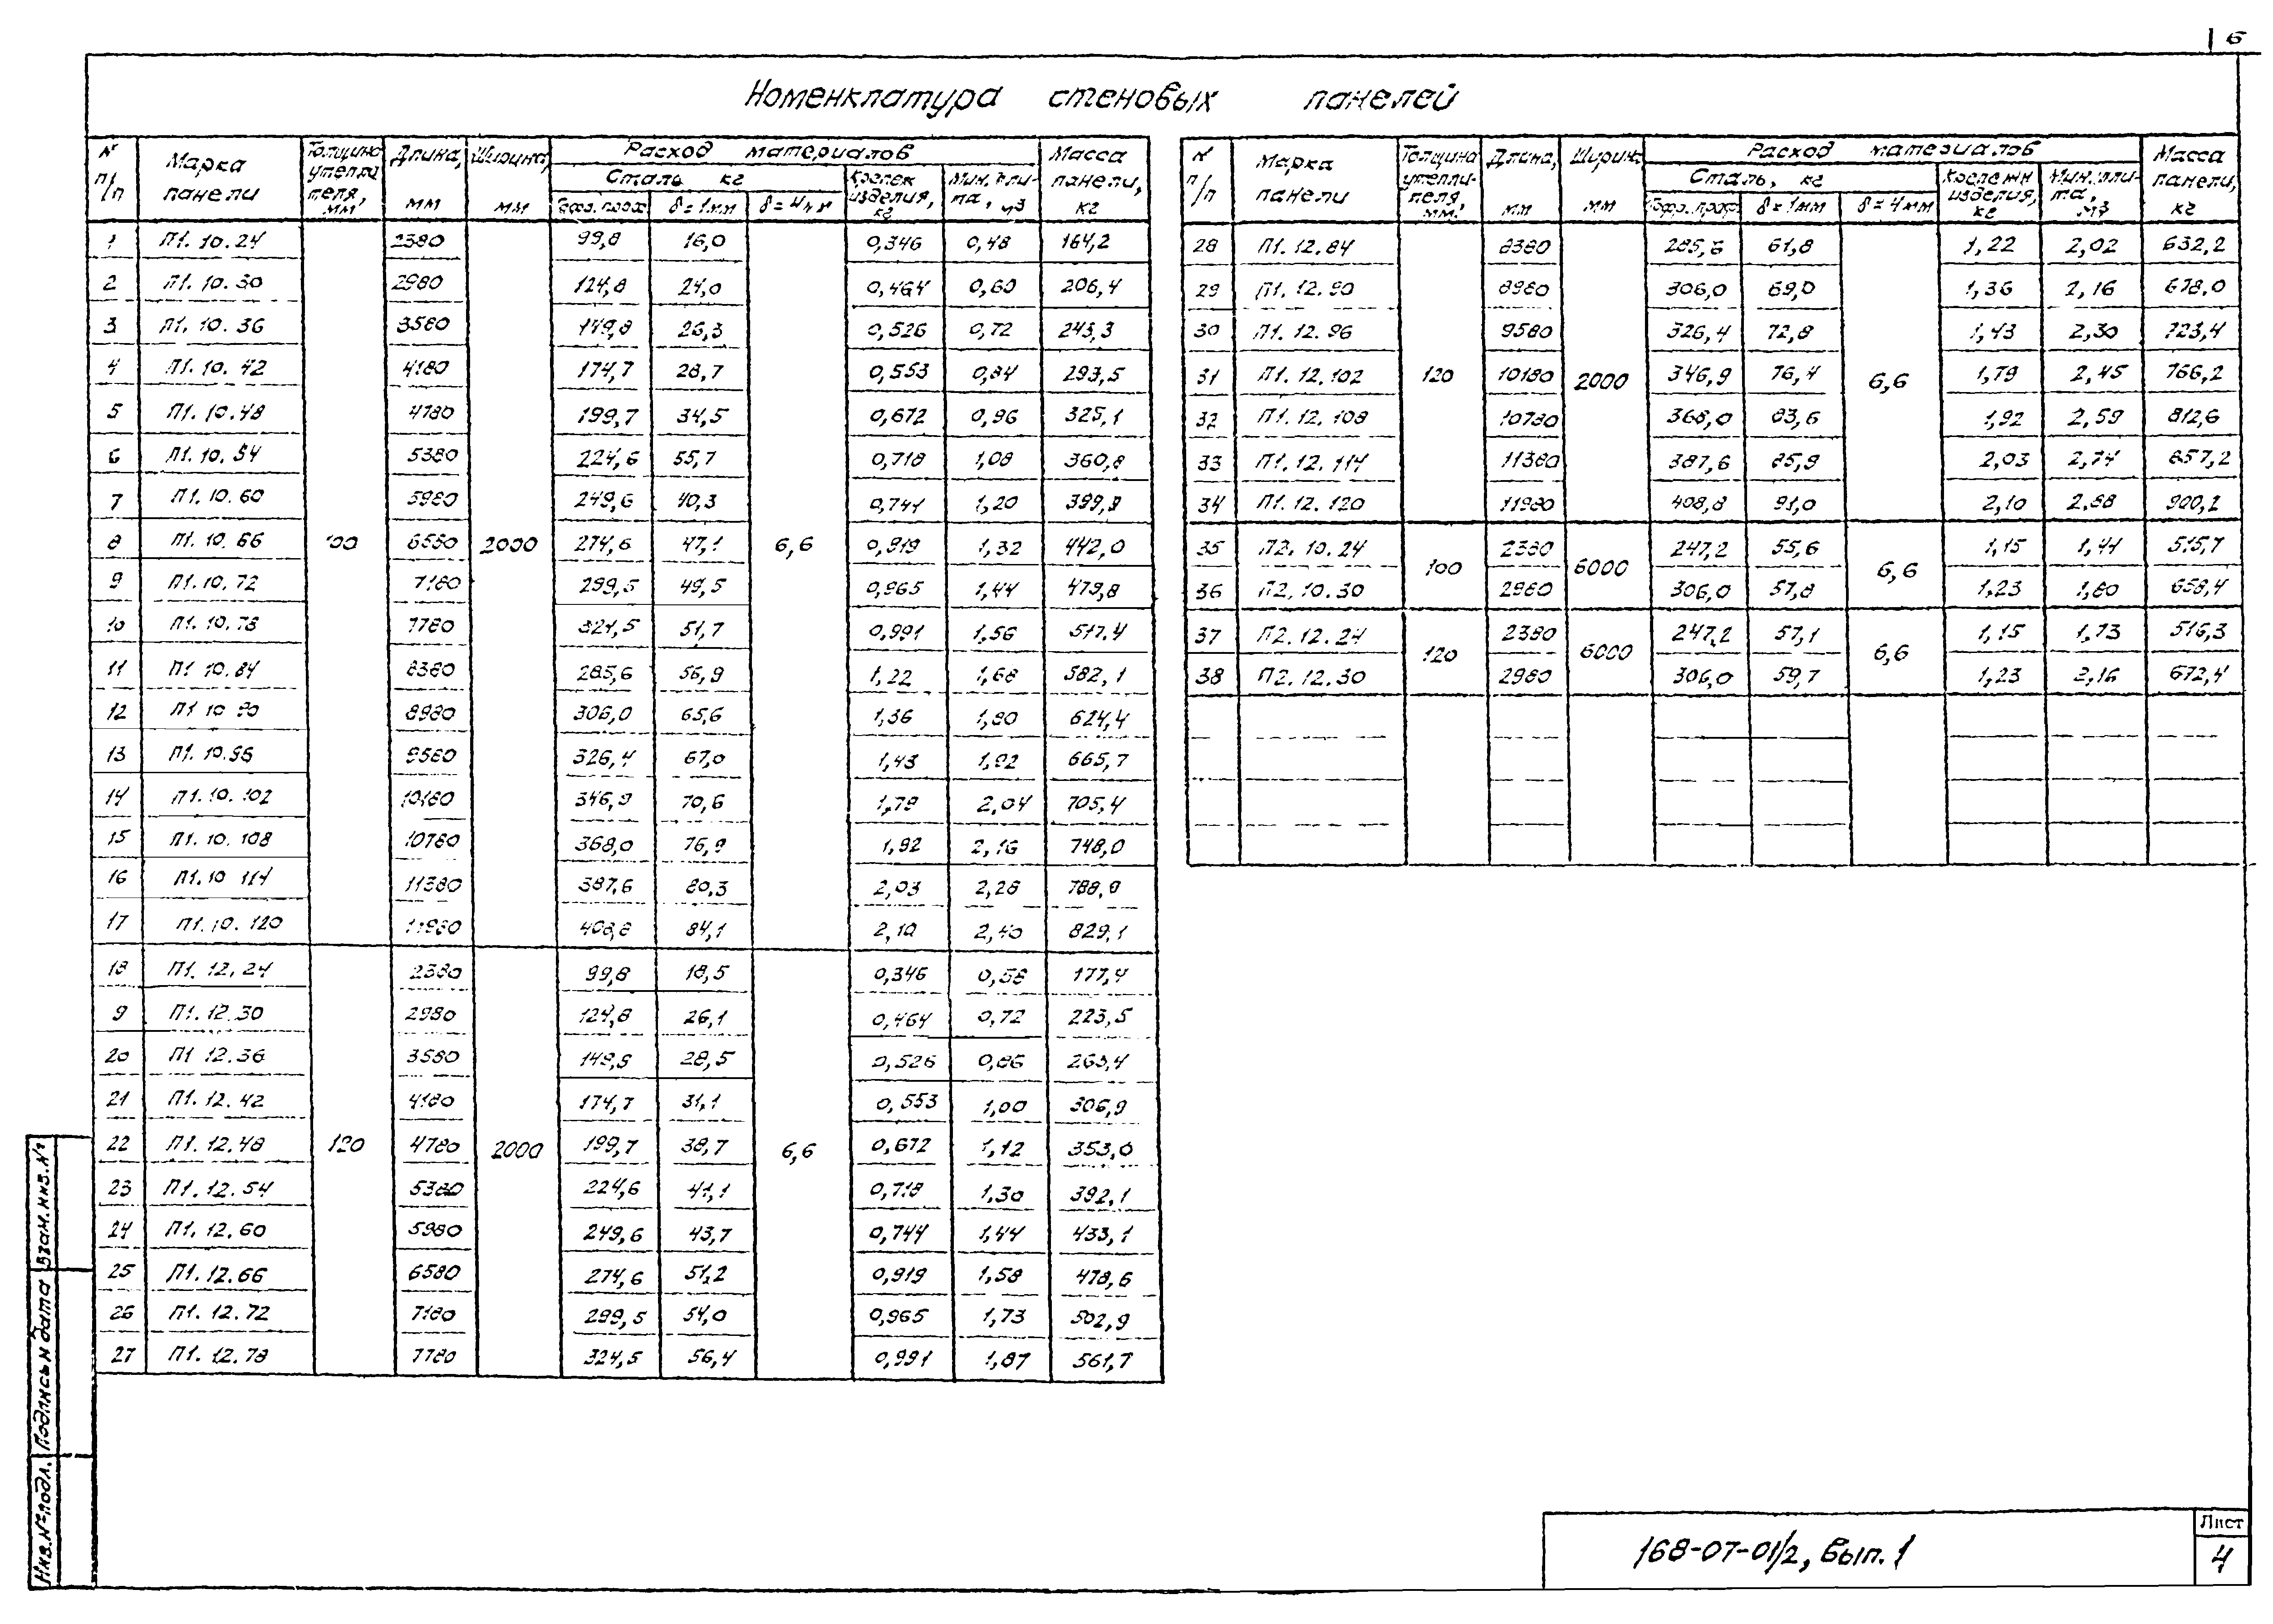 6
Номенклатура стеновых панелей
№ п/п | Марка панели | Толщина утепли теля, мм | Длина, мм | Ширина, мм | Расход материалов | Масса панели, кг
Сталь кг | Крепеж изделия, кг | Мин. пли- та, м3
Гофр. проф | δ=1мм | δ=4мм
1 П1.10.24 2380 99,8 16,0 0,346 0,48 164,2
2 П1.10.30 2980 124,8 24,0 0,464 0,60 206,4
3 П1.10.36 3580 149,8 26,3 0,526 0,72 243,3
4 П1.10.42 4180 174,7 28,7 0,553 0,84 293,5
5 П1.10.48 4780 199,7 34,5 0,672 0,96 325,1
6 П1.10.54 5380 224,6 55,7 0,718 1,08 360,8
7 П1.10.60 5980 249,6 40,3 0,741 1,20 399,8
8 П1.10.66 100 6580 2000 274,6 47,1 6,6 0,919 1,32 442,0
9 П1.10.72 7180 299,5 49,5 0,965 1,44 479,8
10 П1.10.78 7780 324,5 51,7 0,991 1,56 517,4
11 П1 10.84 8380 285,6 56,9 1,22 1,68 582,1
12 П1 10 90 8980 306,0 65,6 1,36 1,80 624,4
13 П1.10.96 9580 326,4 67,0 1,43 1,92 665,7
14 П1.10.102 10180 346,9 70,6 1,79 2,04 705,4
15 П1.10.108 10780 368,0 76,9 1,92 2,16 748,0
16 П1.10 114 11380 387,6 80,3 2,03 2,28 788,8
17 П1.10.120 11980 408,8 84,1 2,10 2,40 829,1
18 П1.12.24 2380 99,8 18,5 0,346 0,58 177,4
9 П1.12.30 2980 124,8 26,1 0,464 0,72 223,5
20 П1 12.36 3580 149,8 28,5 0,526 0,86 263,4
21 П1.12.42 4180 174,7 31,1 0,553 1,00 306,9
22 П1.12.48 120 4780 2000 199,7 38,7 6,6 0,672 1,12 353,0
23 П1.12.54 5380 224,6 41,1 0,718 1,30 392,1
24 П1.12.60 5980 249,6 43,7 0,744 1,44 433,1
25 П1.12.66 6580 274,6 51,2 0,919 1,58 478,6
26 П1.12.72 7180 299,5 54,0 0,965 1,73 502,9
27 П1.12.78 7780 324,5 56,4 0,991 1,87 561,7
№ п/п | Марка панели | Толщина утепли- теля, мм. | Длина, мм | Ширин. мм | Расход материалов | Масса панели, кг
Сталь, кг | Крепежн изделия, кг | Мин. пли- та, м3
Гофр. проф | δ=1мм | δ=4мм
28 П1.12.84 8380 285,6 61,8 1,22 2,02 632,2
29 П1.12.90 8980 306,0 69,0 1,36 2,16 678,0
30 П1.12.96 9580 326,4 72,8 1,43 2,30 723,4
31 П1.12.102 120 10180 2000 346,9 76,4 6,6 1,79 2,45 766,2
32 П1.12.108 10780 368,0 83,6 1,92 2,59 812,6
33 П1.12.114 11380 387,6 85,9 2,03 2,74 857,2
34 П1.12.120 11980 408,8 91,0 2,10 2,88 900,2
35 П2.10.24 100 2380 6000 247,2 55,6 6,6 1,15 1,44 515,7
36 П2.10.30 2980 306,0 57,8 1,23 1,80 658,4
37 П2.12.24 120 2380 6000 247,2 57,1 6,6 1,15 1,73 516,3
38 П2.12.30 2980 306,0 59,7 1,23 2,16 672,4
Взам.инв.№
Подпись и дата
Инв.№ подл.
168-07-01/2, Вып.1
Лист
4